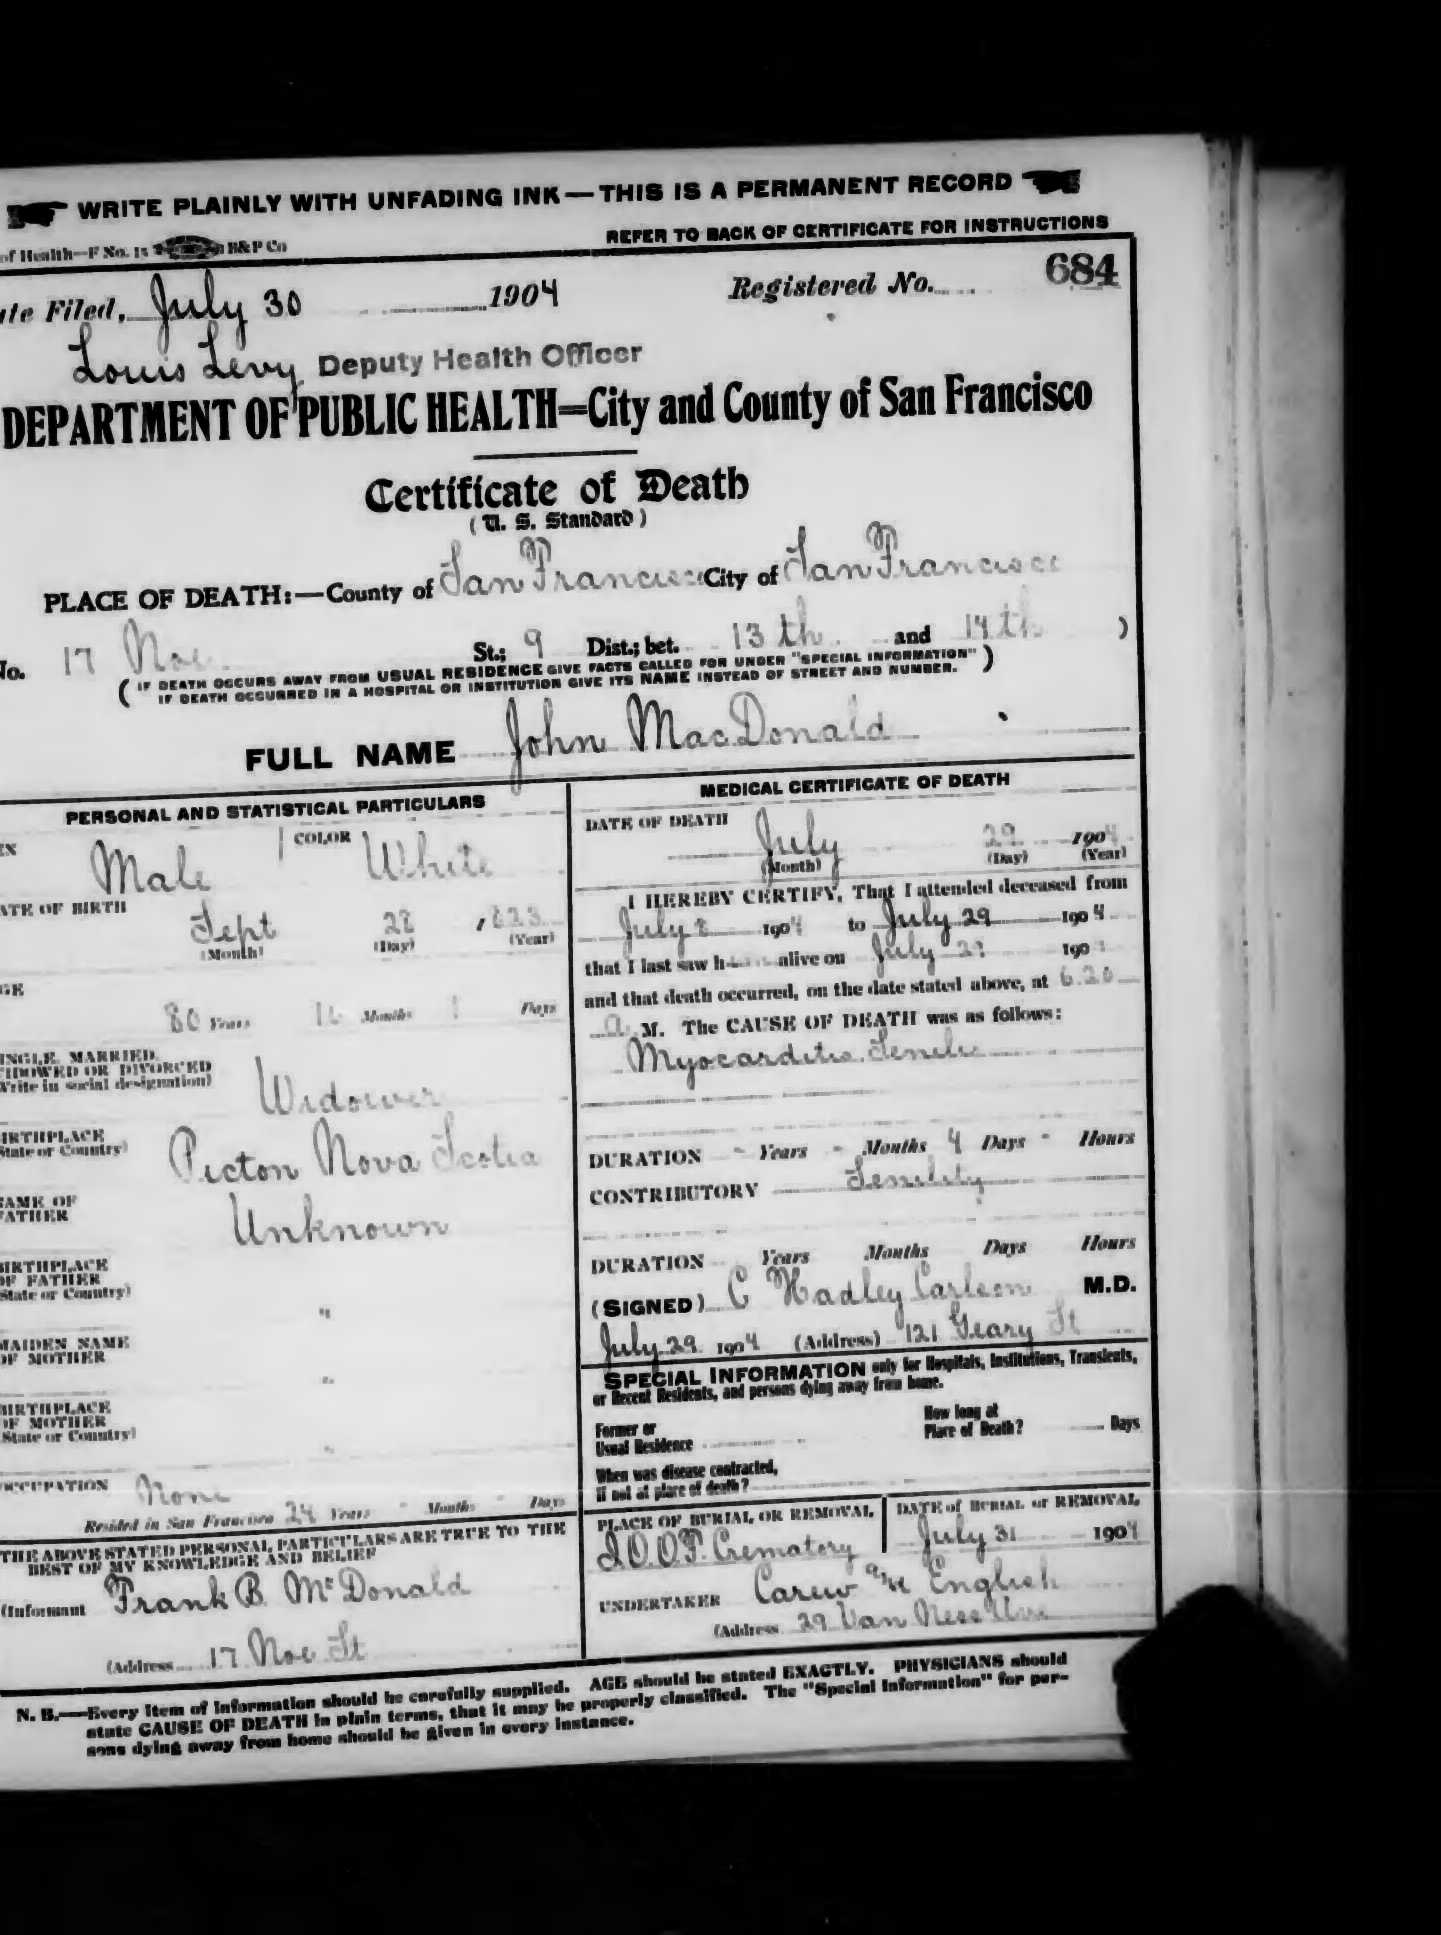 WRITE PLAINLY WITH UNFADING INK — THIS IS A PERMANENT RECORD
of Health—F No. 15 B&P Co
REFER TO BACK OF CERTIFICATE FOR INSTRUCTIONS
ate Filed, July 30 1904 Registered No. 684
Louis Levy Deputy Health Officer
DEPARTMENT OF PUBLIC HEALTH=City and County of San Francisco
Certificate of Death
(U. S. Standard)
PLACE OF DEATH:—County of San Francisco City of San Francisco
No. 17 Noe St.; 9 Dist.; bet. 13th and 14th )
( IF DEATH OCCURS AWAY FROM USUAL RESIDENCE GIVE FACTS CALLED FOR UNDER "SPECIAL INFORMATION" )
IF DEATH OCCURRED IN A HOSPITAL OR INSTITUTION GIVE ITS NAME INSTEAD OF STREET AND NUMBER.
FULL NAME John MacDonald
PERSONAL AND STATISTICAL PARTICULARS
EX Male COLOR White
ATE OF BIRTH
Sept 28 1823
(Month) (Day) (Year)
GE
80 Years 10 Months 1 Days
INGLE, MARRIED,
IDOWED OR DIVORCED
Write in social designation)
Widower
IRTHPLACE
State or Country)
Picton Nova Scotia
NAME OF
FATHER
Unknown
BIRTHPLACE
OF FATHER
State or Country)
"
MAIDEN NAME
OF MOTHER
"
BIRTHPLACE
OF MOTHER
(State or Country)
"
OCCUPATION None
Resided in San Francisco 24 Years - Months - Days
THE ABOVE STATED PERSONAL PARTICULARS ARE TRUE TO THE
BEST OF MY KNOWLEDGE AND BELIEF
(Informant Frank B. McDonald
(Address 17 Noe St
MEDICAL CERTIFICATE OF DEATH
DATE OF DEATH
July 29 1904
(Month) (Day) (Year)
I HEREBY CERTIFY, That I attended deceased from
July 8 1904 to July 29 1904
that I last saw h alive on July 29 190
and that death occurred, on the date stated above, at 6.20
a M. The CAUSE OF DEATH was as follows:
Myocarditis Senile
DURATION - Years - Months 4 Days - Hours
CONTRIBUTORY Senility
DURATION Years Months Days Hours
(SIGNED) C Hadley Carlson M.D.
July 29 1904 (Address) 121 Geary St
SPECIAL INFORMATION only for Hospitals, Institutions, Transients,
or Recent Residents, and persons dying away from home.
Former or
Usual Residence
How long at
Place of Death? Days
When was disease contracted,
if not at place of death?
PLACE OF BURIAL OR REMOVAL
I.O.O.F. Crematory
DATE of BURIAL or REMOVAL
July 31 1904
UNDERTAKER Carew &  English
(Address 29 Van Ness Ave
N. B.—Every item of information should be carefully supplied. AGE should be stated EXACTLY. PHYSICIANS should
state CAUSE OF DEATH in plain terms, that it may be properly classified. The "Special Information" for per-
sons dying away from home should be given in every instance.